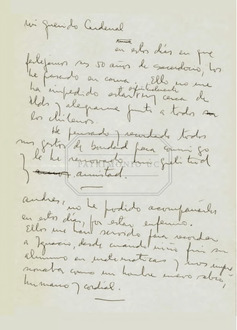 Mi querido Cardenal
en estos días en que
festejamos sus 50 años de sacerdocio, los
he pasado en cama. Ello no me
ha impedido estar espiritualmente cerca de
Uds y alegrarme junto a todos
los chilenos
He pensado y recordado todos
sus gestos de bondad para conmigo
y le he renovado mi gratitud
y amistad.
Andrés, no he podido acompañarlos
en estos días, por estar enfermo.
Ellos me han servido para recordar
a Ignacio, desde cuando niño fui su
alumno en matemáticas y nos
como un hombre nuevo sabio,
humano y cordial.